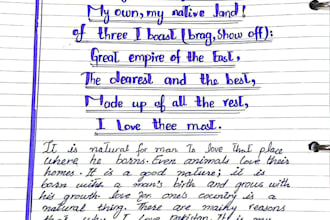 My own, my native land!
of three I boast (brag, show off):
Great empire of the East,
The dearest and the best,
Made up of all the rest,
I Love thee most.
It is natural for man to love that place
where he borns. Even animals love their
homes. It is a good nature; it is
born with a man's birth and grows with
his growth. love for one's country is a
natural thing. There are mainly reasons
that why I love Pakistan. It is my